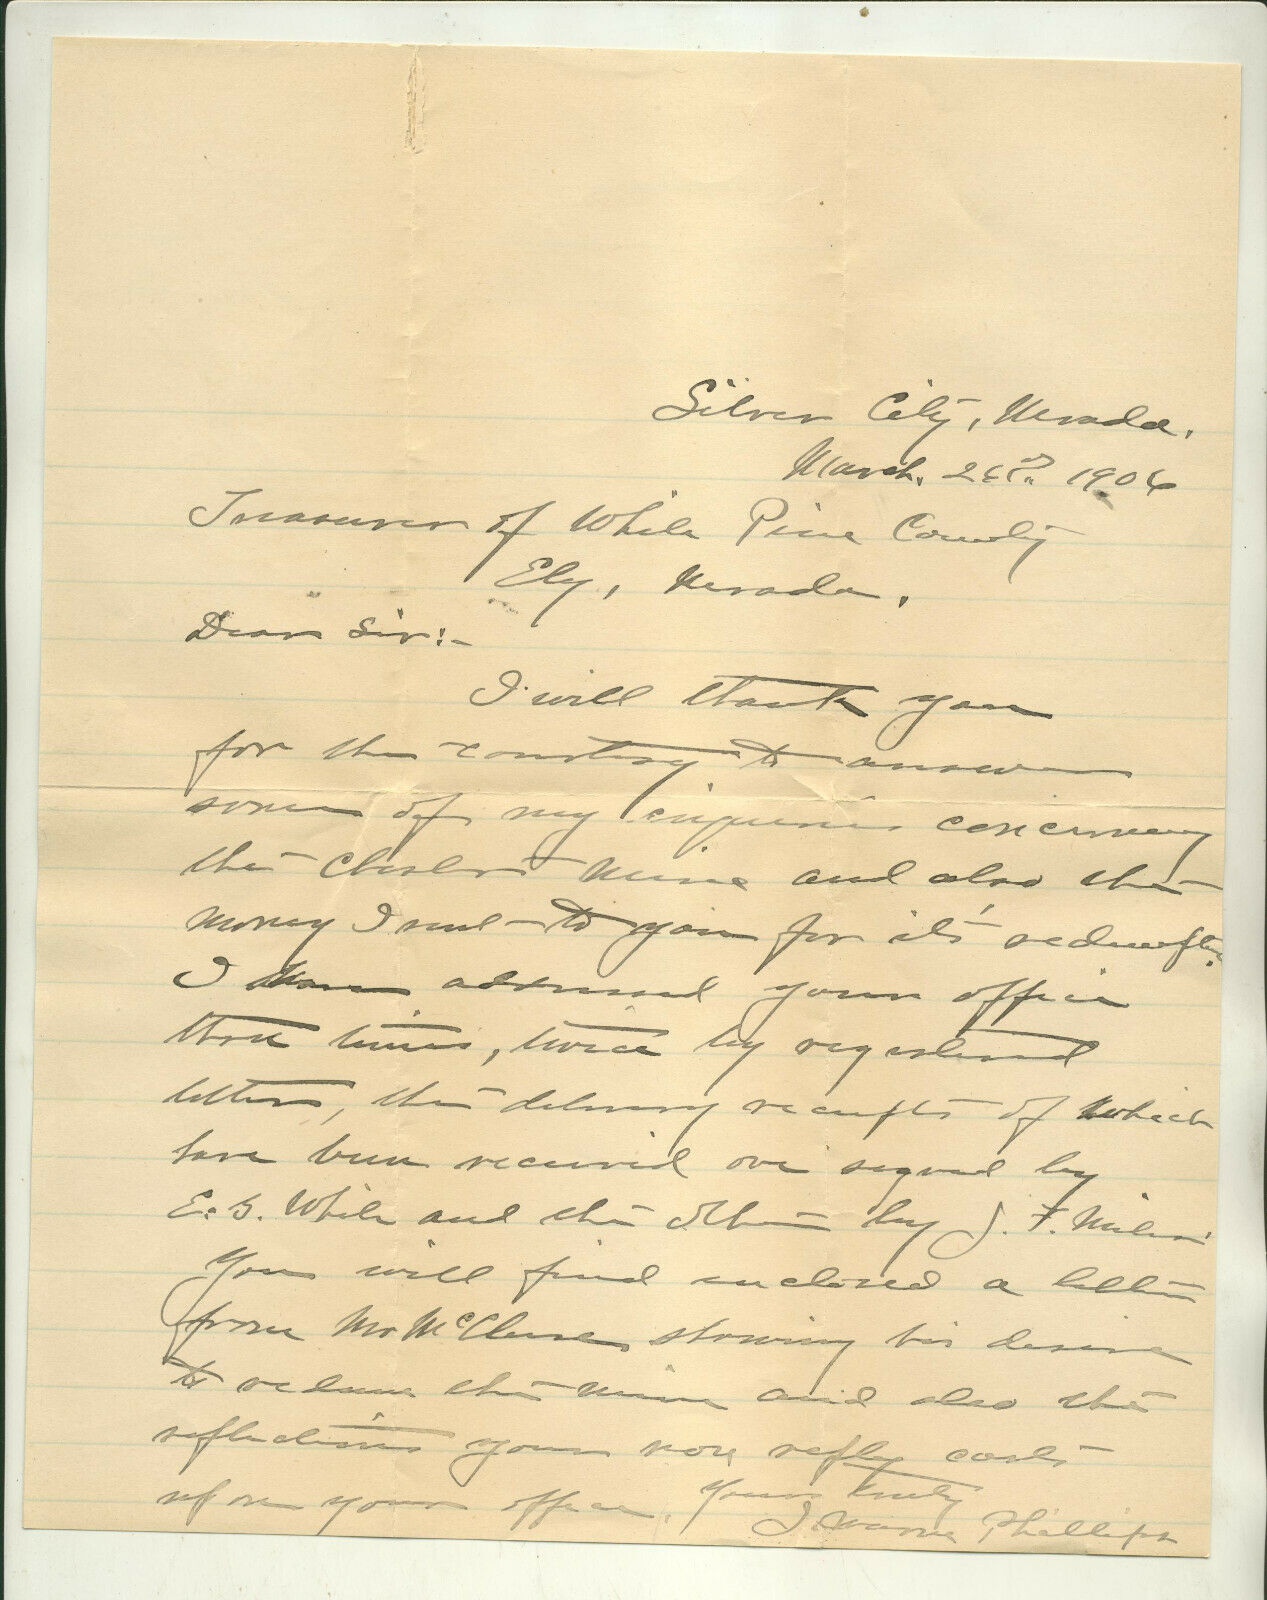 Silver City, Nevada.
March. 26th. 1906
Treasurer of White Pine County
Ely, Nevada.
Dear Sir:-
I will thank you
for the courtesy to answer
some of my inquiries concerning
the Chester Mine and also the
money I sent to you for it's redemption.
I have addressed your office
three times, twice by registered
letters, the delivery receipts of which
have been received one signed by
E. G. White and the other by J. F. Miles.
You will find enclosed a letter
from Mr McClure showing his desire
to redeem the mine and also the
reflections your non reply casts
upon your office. Yours truly
J. Warne Phillips